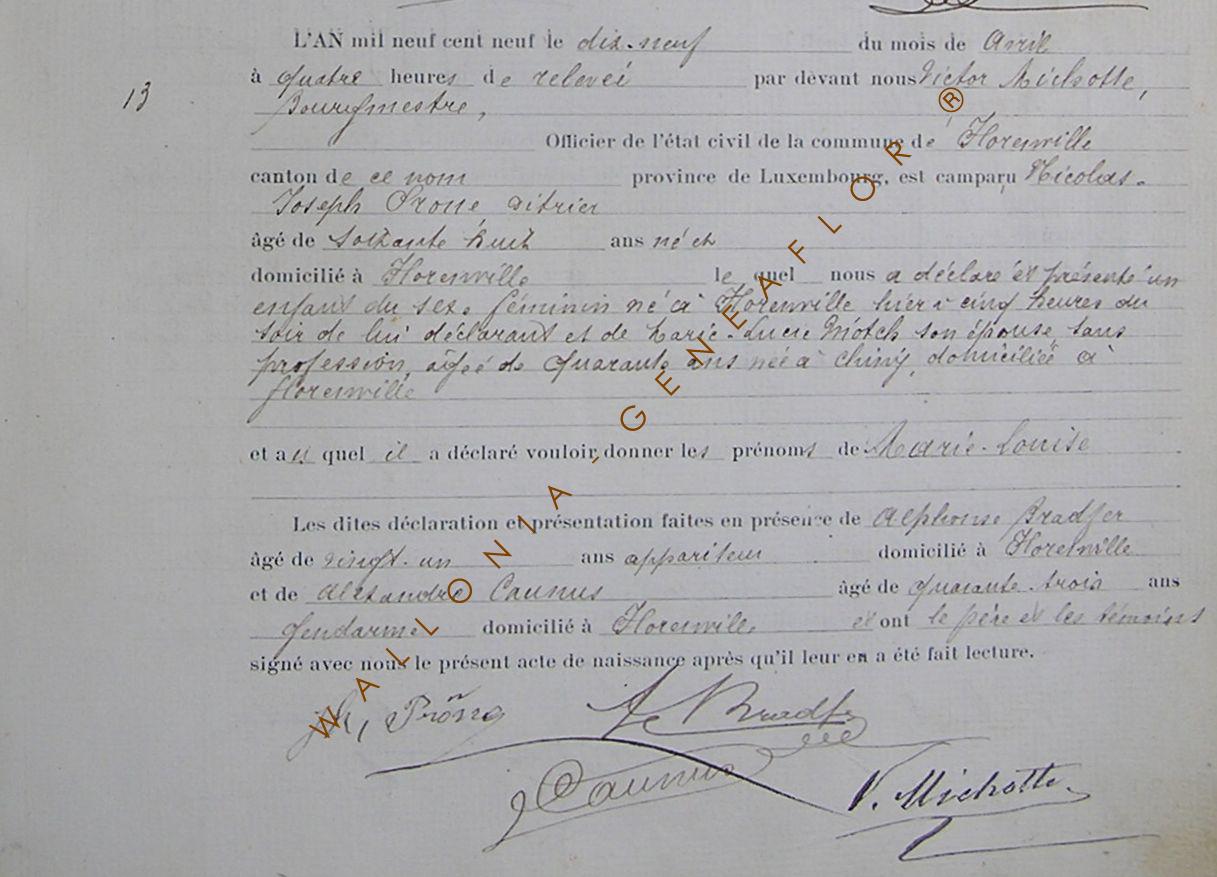 L'AN mil neuf cent neuf le dix-neuf du mois de Avril
à quatre heures de relevée par devant nous Victor Michotte,
13
Bourgmestre,
Officier de l'état civil de la commune de Florenville
canton de ce nom province de Luxembourg, est comparu Nicolas-
Joseph
âgé de soixante huit ans né et
domicilié à Florenville lequel nous a déclaré et présenté un
enfant du sexe féminin né à Florenville hier à cinq heures du
soir de lui déclarant et de Marie-Lucie son épouse, sans
profession, âgée de quarante ans née à Chiny, domiciliée à
Florenville
et au quel il a déclaré vouloir donner les prénoms de Marie-Louise
Les dites déclaration et présentation faites en présence de Alphonse Bradfer
âgé de vingt-un ans appariteur domicilié à Florenville
et de Alexandre Caunus âgé de quarante-trois ans
gendarme domicilié à Florenville et ont le père et les témoins
signé avec nous le présent acte de naissance après qu'il leur en a été fait lecture.
A Bradfer
Caunus
V. Michotte
WALLONIA GENEAFLOR ®